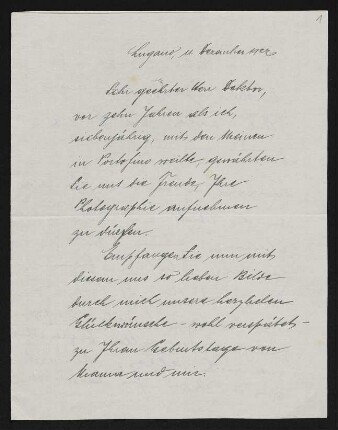 1
Lugano, 11 Dezember 1922.
Sehr geehrter Herr Doktor,
vor zehn Jahren als ich,
siebenjährig, mit den Meinen
in Portofino weilte, gewährten
Sie uns die Freude, Ihre
Photographie aufnehmen
zu dürfen.
Empfangen Sie nun mit
diesem uns so lieben Bilde
durch mich unsere herzlichen
Glückwünsche - wohl verspätet -
zu Ihrem Geburtstage von
Mama und mir.